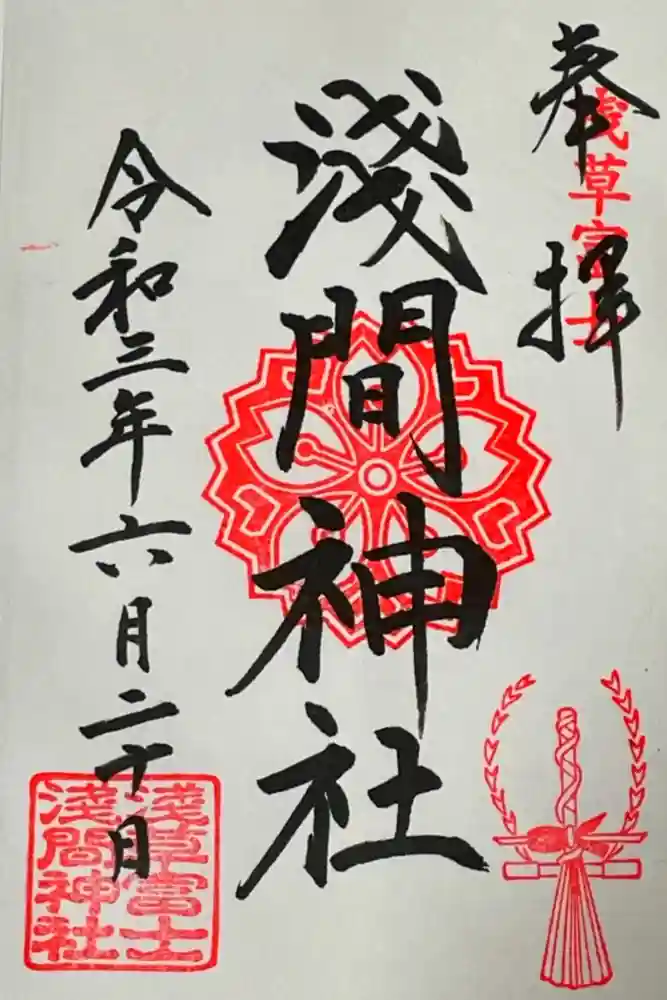 奉拝
浅草富士
淺間神社
令和三年六月二十日
淺草富士
淺間神社